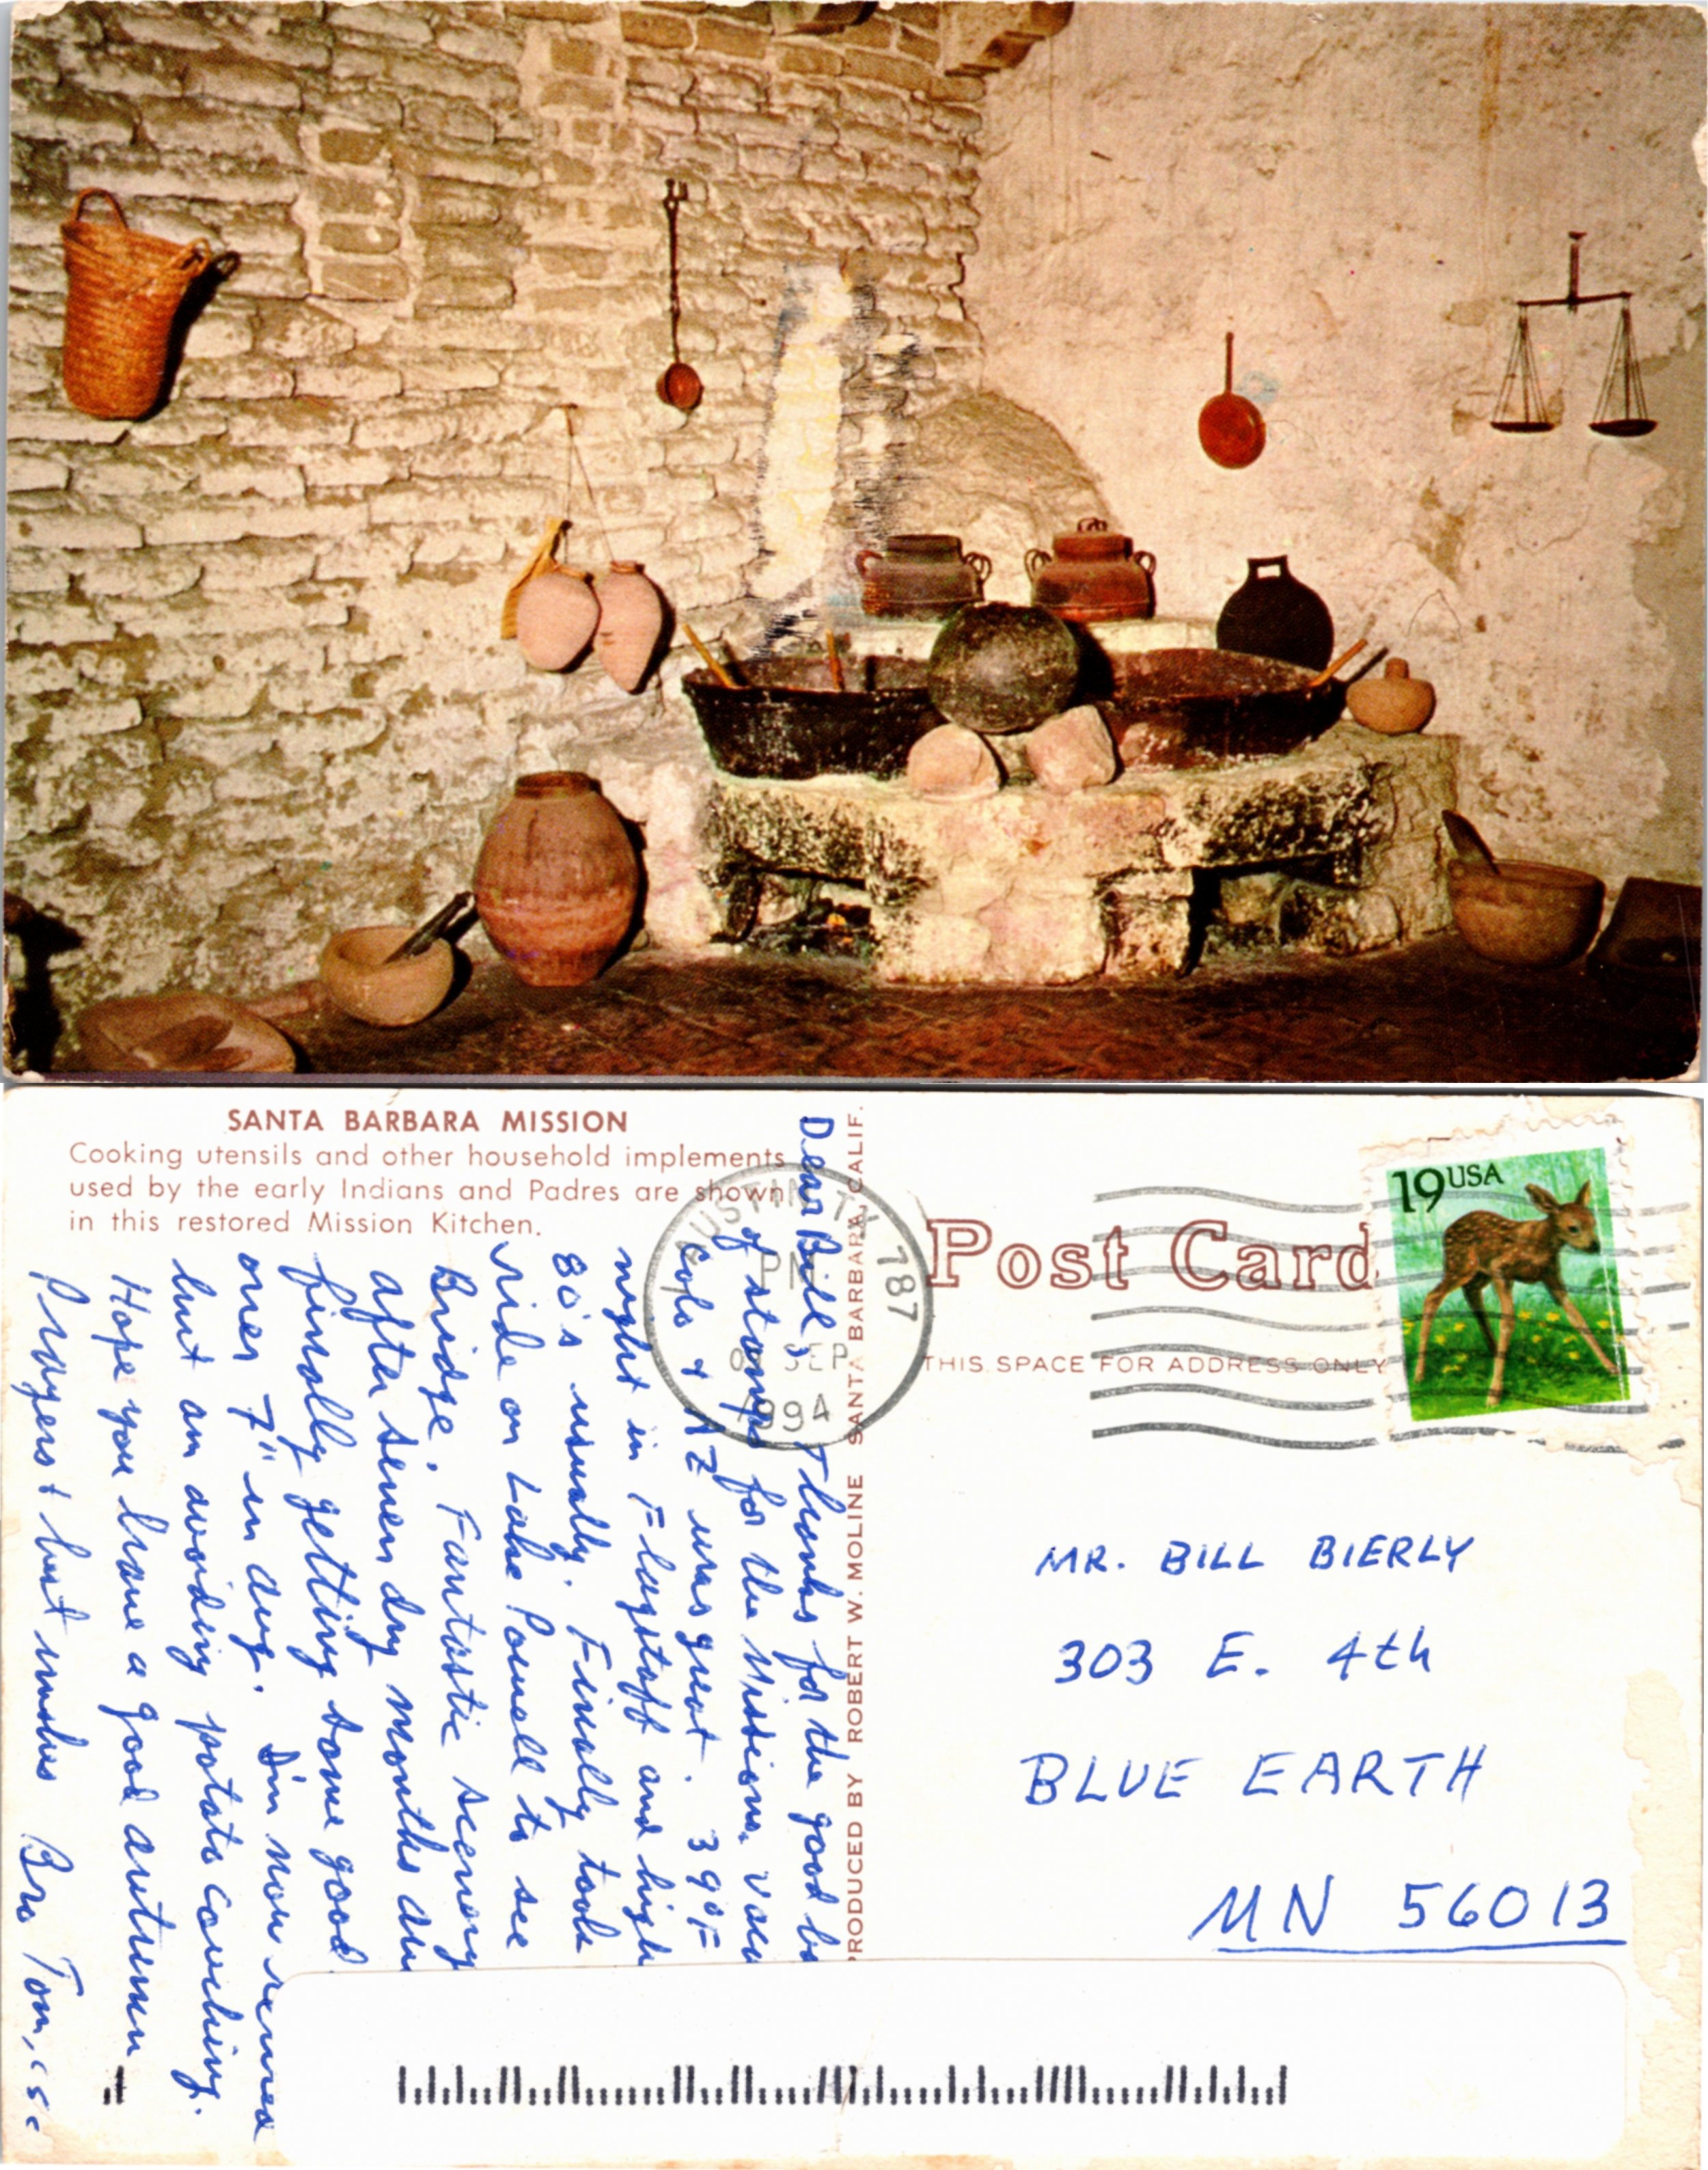 SANTA BARBARA MISSION
Cooking utensils and other household implements
used by the early Indians and Padres are shown
in this restored Mission Kitchen.
Dear Bill, Thanks for the good
of stamps for the Missions.
Colo & AZ was great. 39°F
night in Flagstaff and high
80's usually. Finally took
ride on Lake Powell to see
Bridge. Fantastic scenery
after seven dry months
finally getting some good
over 7" in Aug. I'm now
but am avoiding potato couching.
Hope you have a good autumn
Prayers & best wishes Bro Tom, csc
PRODUCED BY ROBERT W. MOLINE SANTA BARBARA, CALIF.
AUSTIN TX 787
PM
SEP
1994
Post Card
THIS SPACE FOR ADDRESS ONLY
19 USA
MR. BILL BIERLY
303 E. 4th
BLUE EARTH
MN 56013